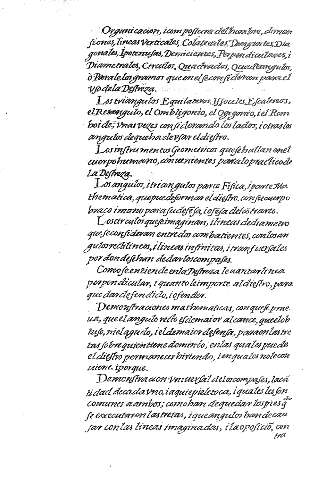 Organizacion, i compostura del hombre, dimen
siones, lineas Verticales, Colaterales, Tangentes, Dia
gonales, Ipotenusas, Demicientes, Perpendiculares, i
Diametrales, Circulos, Quadrados, Quadrangulos,
o Paralelogramos que en el se consideran para el
uso de la Destreza.
Los triangulos Equilateros, Ysoceles, Escalenos,
el Resangulo, el Ombligonio, el Oxigonio, i el Rom
boide; unas vezes considerando los lados, i otras los
angulos de que ha de usar el diestro.
Los instrumentos Geometricos que se hallan en el
cuerpo humano, convenientes para lo practico de
la Destreza.
Los angulos, i triangulos parte Fisica, i parte Ma
thematica, que puede formar el diestro, con su cuerpo
braço i mano para su defensa, i ofesa de los otros.
Los circulos que se imaginan, i lineas de diametro
que se consideran entre dos combatientes, con los an
gulos rectilineos, i lineas infinitas, i transversales
por donde se han de dar los compases.
Como se entiende en la Destreza levantar linea
perpendicular, i quanto le importe al diestro, para
quedar defendido, i ofender.
Demonstraciones mathematicas, con que se prue
va, que el angulo recto es de maior alcance, que el ob
tuso, ni el agudo, i el de maior defensa, ponense las tre
tas sobre quien tiene dominio, en las quales puede
el diestro permanecer hiriendo, i en quales no le con
viene, i porque.
Demonstracion universal de los compases, la can
tidad de cada uno, i a que pie toca, i quales les son
comunes a ambos; como han de quedar los pies q̃
se executaron las tretas, i que angulos han de cau
sar con las lineas imaginadas, i la oposicion, con
tra